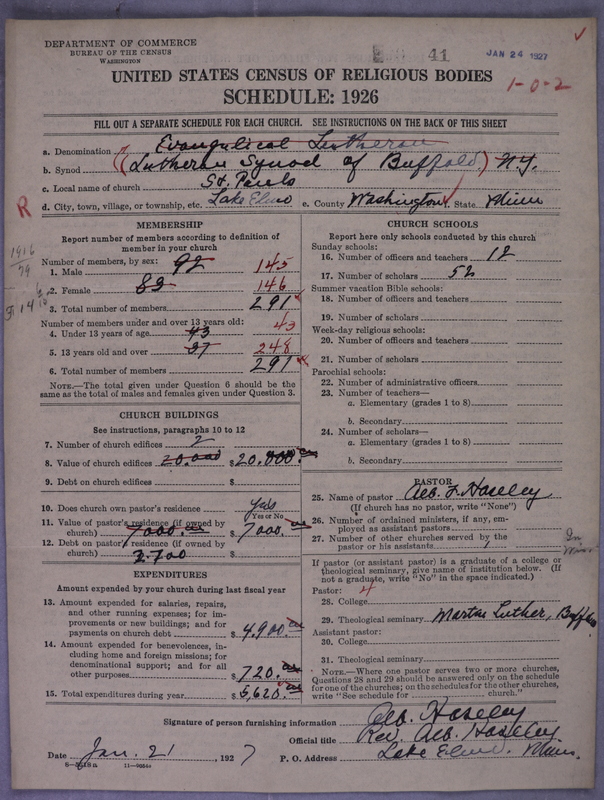 DEPARTMENT OF COMMERCE
BUREAU OF THE CENSUS
WASHINGTON
41
JAN 24 1927
1-0-2
UNITED STATES CENSUS OF RELIGIOUS BODIES
SCHEDULE: 1926
FILL OUT A SEPARATE SCHEDULE FOR EACH CHURCH. SEE INSTRUCTIONS ON THE BACK OF THIS SHEET
a. Denomination Evangelical Lutheran
b. Synod (Lutheran Synod of Buffalo) N.Y.
c. Local name of church St. Pauls
d. City, town, village, or township, etc. Lake Elmo e. County Washington State Minn
R
MEMBERSHIP
Report number of members according to definition of
member in your church
Number of members, by sex:
1. Male 92 145
2. Female 83 146
3. Total number of members 291
Number of members under and over 13 years old:
4. Under 13 years of age 43 43
5. 13 years old and over 37 248
6. Total number of members 291
NOTE.—The total given under Question 6 should be
the same as total of males and females given under Question 3.
1916
CHURCH BUILDINGS
See instructions, paragraphs 10 to 12
7. Number of church edifices 2
8. Value of church edifices 20.000 $20.000.
9. Debt on church edifices $
10. Does church own pastor's residence? Yes
Yes or No
11. Value of pastor's residence (if owned by
church) 7000. $7000.
12. Debt on pastor's residence (if owned by
church) 2.700 $
EXPENDITURES
Amount expended by your church during last fiscal year
13. Amount expended for salaries, repairs,
and other running expenses; for im-
provements or new buildings; and for
payments on church debt $4.900.
14. Amount expended for benevolences, in-
cluding home and foreign missions; for
denominational support; and for all
other purposes $720.
15. Total expenditures during year $5,620.
CHURCH SCHOOLS
Report here only schools conducted by this church
Sunday schools:
16. Number of officers and teachers 12
17. Number of scholars 52
Summer vacation Bible schools:
18. Number of officers and teachers
19. Number of scholars
Week-day religious schools:
20. Number of officers and teachers
21. Number of scholars
Parochial schools:
22. Number of administrative officers
23. Number of teachers—
a. Elementary (grades 1 to 8)
b. Secondary
24. Number of scholars—
a. Elementary (grades 1 to 8)
b. Secondary
PASTOR
25. Name of pastor Alb. F. Haseley
(If church has no pastor, write "None")
26. Number of ordained ministers, if any, em-
ployed as assistant pastors
27. Number of other churches served by the
pastor or his assistants
If pastor (or assistant pastor) is a graduate of a college or
theological seminary, give name of institution below. (If
not a graduate, write "No" in the space indicated.)
Pastor: 4
28. College
29. Theological seminary Martin Luther, Buffalo
Assistant pastor:
30. College
31. Theological seminary
NOTE.—Where one pastor serves two or more churches,
Questions 28 and 29 should be answered only on the schedule
for one of the churches; on the schedules for the other churches,
write "See schedule for church."
Signature of person furnishing information Alb. Haseley
Official title Rev. Alb. Haseley
Date Jan. 21, 1927 P. O. Address Lake Elmo. Minn.